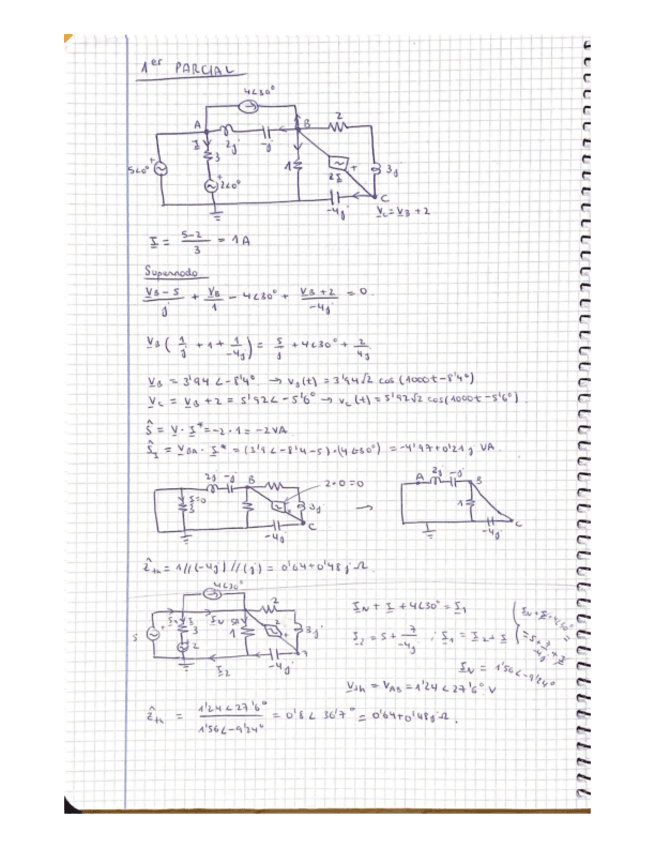 1er PARCIAL
4∠30°
A 2j -j B 2
I 3 1 2I + 3j
5∠0° + + 2∠0°
-4j C
V_C = V_B + 2
I = (5-2)/3 = 1 A
Supernodo
(V_B - 5)/j + V_B/1 - 4∠30° + (V_B + 2)/(-4j) = 0.
V_B (1/j + 1 + 1/(-4j)) = 5/j + 4∠30° + 2/(4j)
V_B = 3'94∠-8'4° → v_B(t) = 3'94√2 cos(1000t - 8'4°)
V_C = V_B + 2 = 5'92∠-5'6° → v_C(t) = 5'92√2 cos(1000t - 5'6°).
Ŝ = V · I* = -2 · 1 = -2VA
Ŝ_I = V_BA · I* = (3'9∠-8'4 - 5) · (4∠30°) = -4'97 + 0'21j VA.
2j -j B 2·0=0 A 2j -j B
I=0 3 3j → 1
-4j C -4j C
Ẑ_th = 1//(-4j)//(j) = 0'64 + 0'48j Ω.
4∠30°
I_N 2
5 + 3 1 2 + 3j
I_2 -4j
I_N + I + 4∠30° = I_1
I_2 = 5 + 7/(-4j) ; I_1 = I_2 + I
I_N = 1'56∠-9'24°
V_th = V_AB = 1'24∠27'6° V
Ẑ_th = 1'24∠27'6° / 1'56∠-9'24° = 0'8∠36'7° = 0'64 + 0'48j Ω.